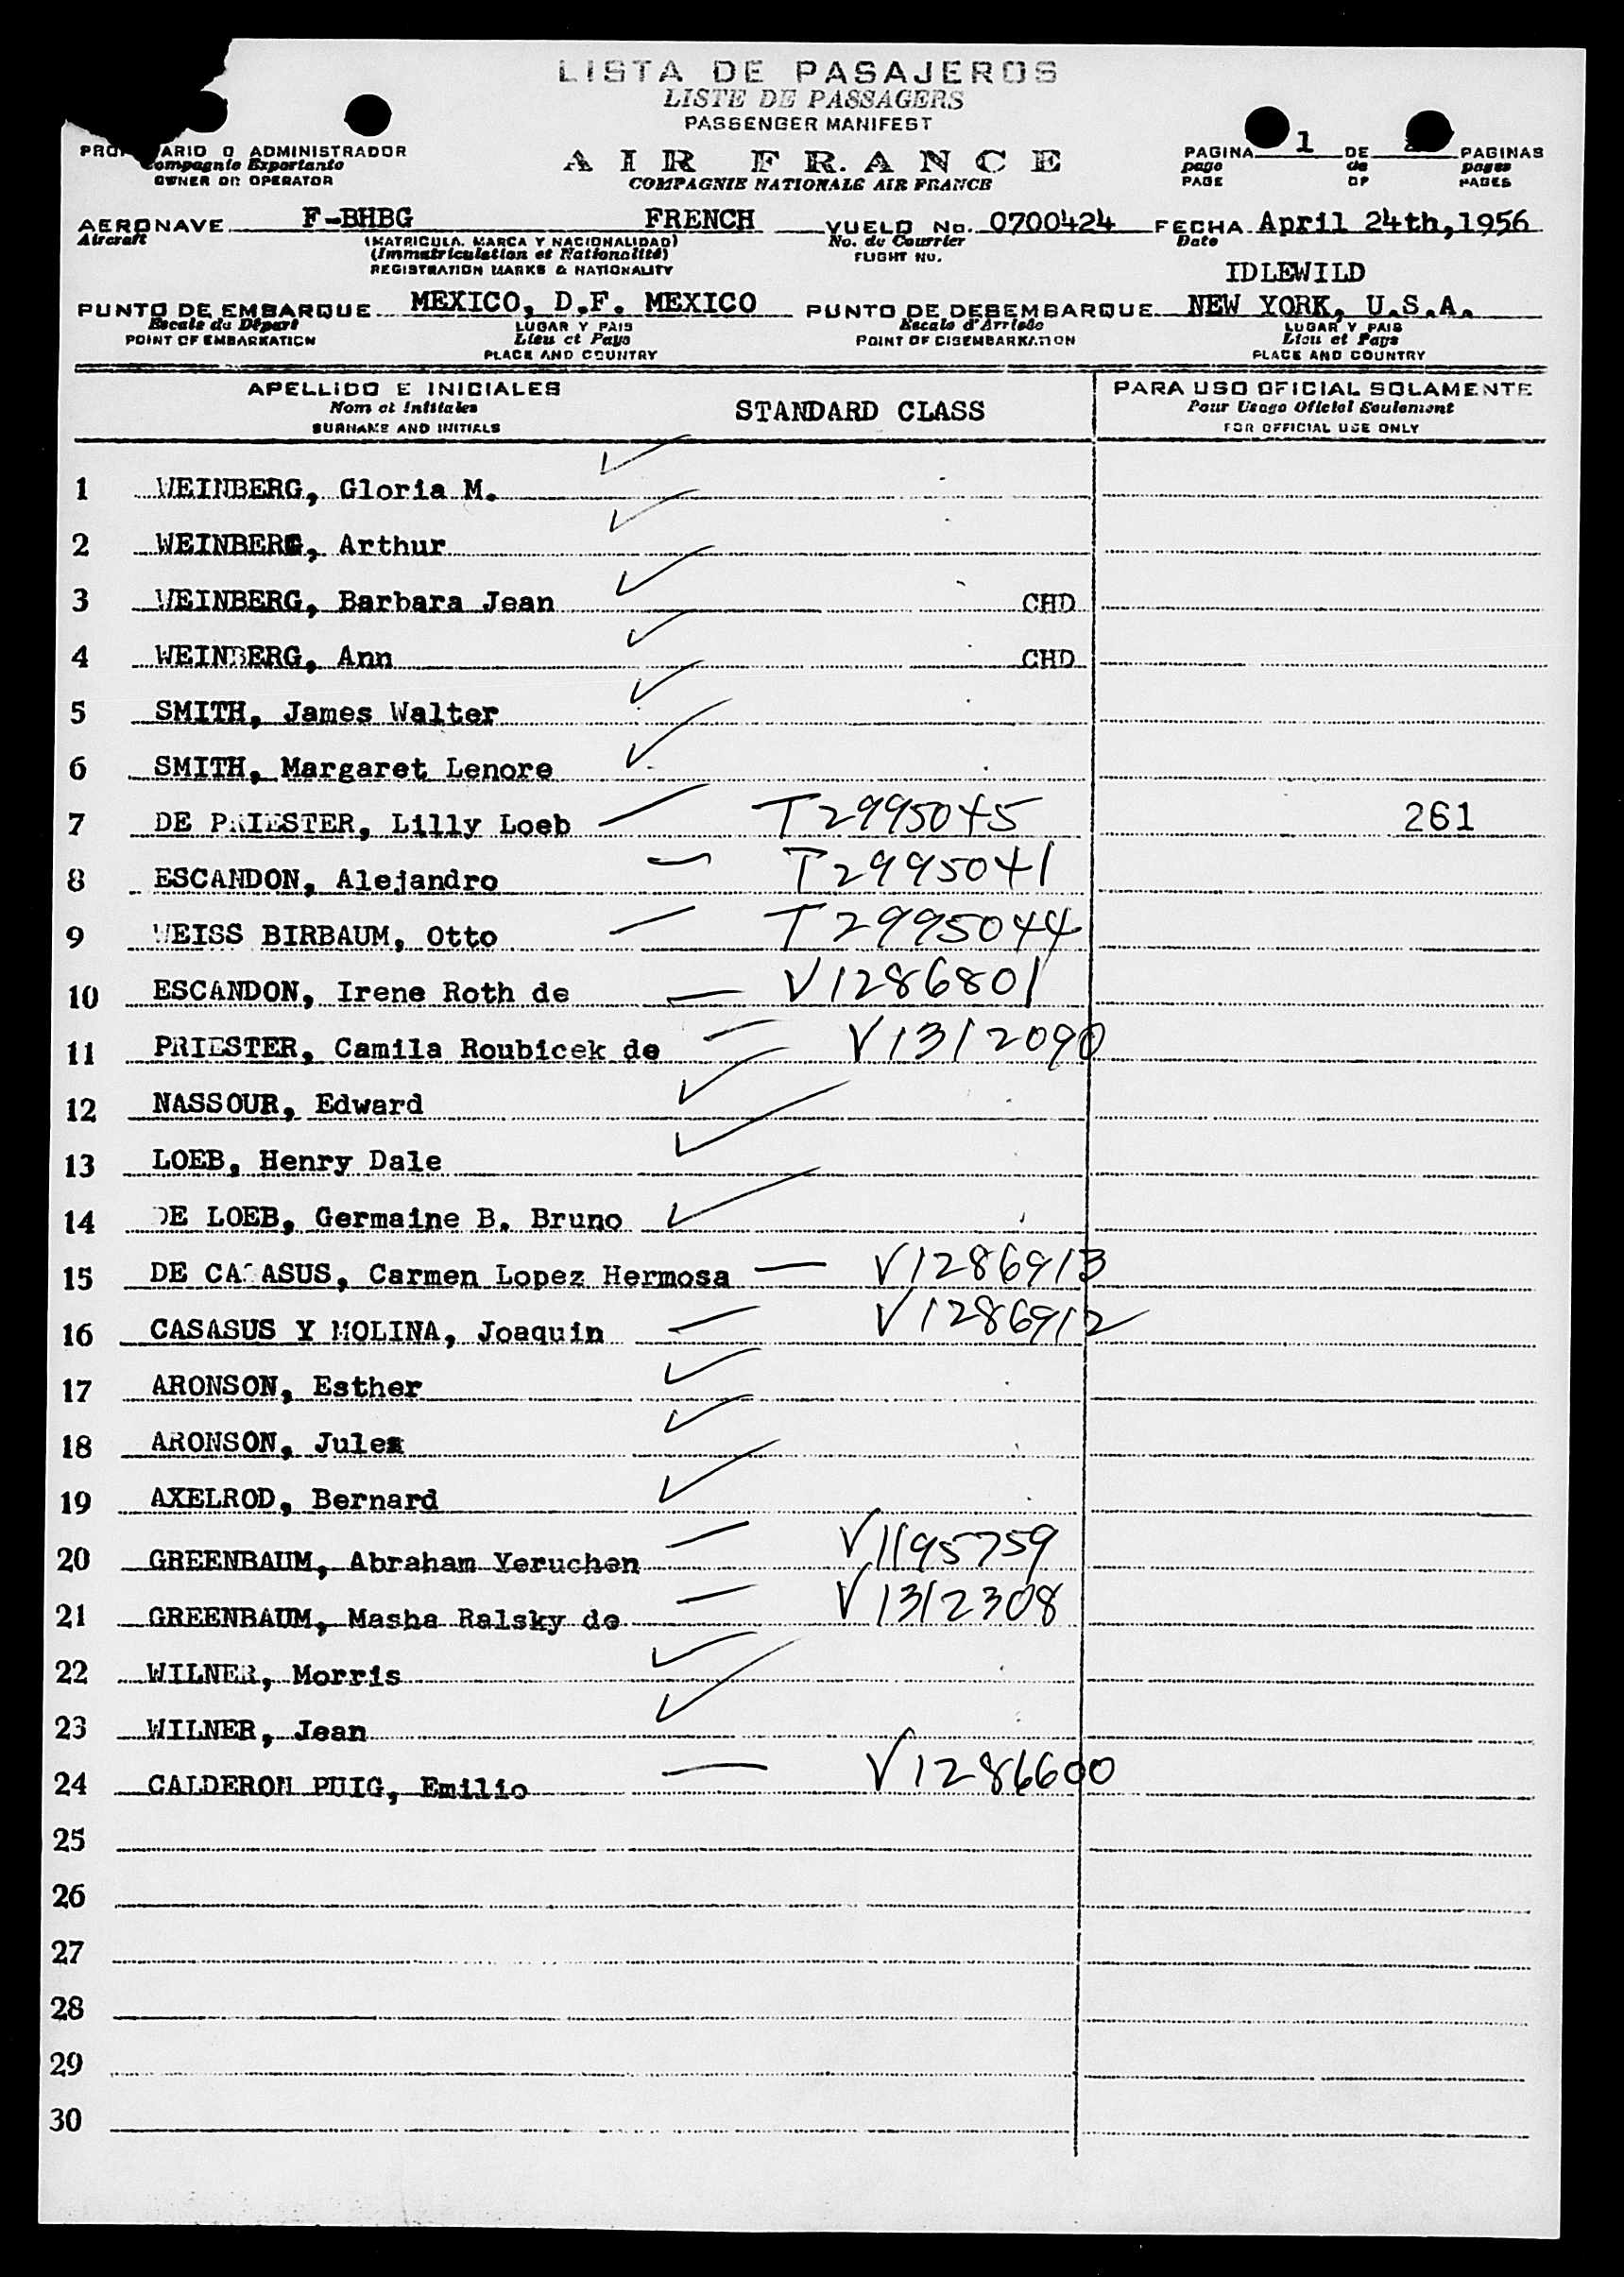 LISTA DE PASAJEROS
LISTE DE PASSAGERS
PASSENGER MANIFEST
ARIO O ADMINISTRADOR
Compagnie Exportante
OWNER OR OPERATOR
AIR FRANCE
COMPAGNIE NATIONALE AIR FRANCE
PAGINA 1 DE PAGINAS
page de pages
PAGE OF PAGES
AERONAVE F-BHBG FRENCH VUELO No. 0700424 FECHA April 24th, 1956
Aircraft (MATRICULA, MARCA Y NACIONALIDAD) No. de Courrier Date
(Immatriculation et Nationalité) FLIGHT NO.
REGISTRATION MARKS & NATIONALITY
IDLEWILD
PUNTO DE EMBARQUE MEXICO, D.F. MEXICO PUNTO DE DESEMBARQUE NEW YORK, U.S.A.
Escale du Départ LUGAR Y PAIS Escale d'Arrivée LUGAR Y PAIS
POINT OF EMBARKATION Lieu et Pays POINT OF DISEMBARKATION Lieu et Pays
PLACE AND COUNTRY PLACE AND COUNTRY
APELLIDO E INICIALES STANDARD CLASS PARA USO OFICIAL SOLAMENTE
Nom et Initiales Pour Usage Officiel Seulement
SURNAME AND INITIALS FOR OFFICIAL USE ONLY
1 WEINBERG, Gloria M.
2 WEINBERG, Arthur
3 WEINBERG, Barbara Jean CHD
4 WEINBERG, Ann CHD
5 SMITH, James Walter
6 SMITH, Margaret Lenore
7 DE PRIESTER, Lilly Loeb T2995045 261
8 ESCANDON, Alejandro T2995041
9 WEISS BIRBAUM, Otto T2995044
10 ESCANDON, Irene Roth de V1286801
11 PRIESTER, Camila Roubicek de V1312090
12 NASSOUR, Edward
13 LOEB, Henry Dale
14 DE LOEB, Germaine B. Bruno
15 DE CASASUS, Carmen Lopez Hermosa V1286913
16 CASASUS Y MOLINA, Joaquin V1286912
17 ARONSON, Esther
18 ARONSON, Jules
19 AXELROD, Bernard
20 GREENBAUM, Abraham Yeruchen V1195759
21 GREENBAUM, Masha Ralsky de V1312308
22 WILNER, Morris
23 WILNER, Jean
24 CALDERON PUIG, Emilio V1286600
25
26
27
28
29
30